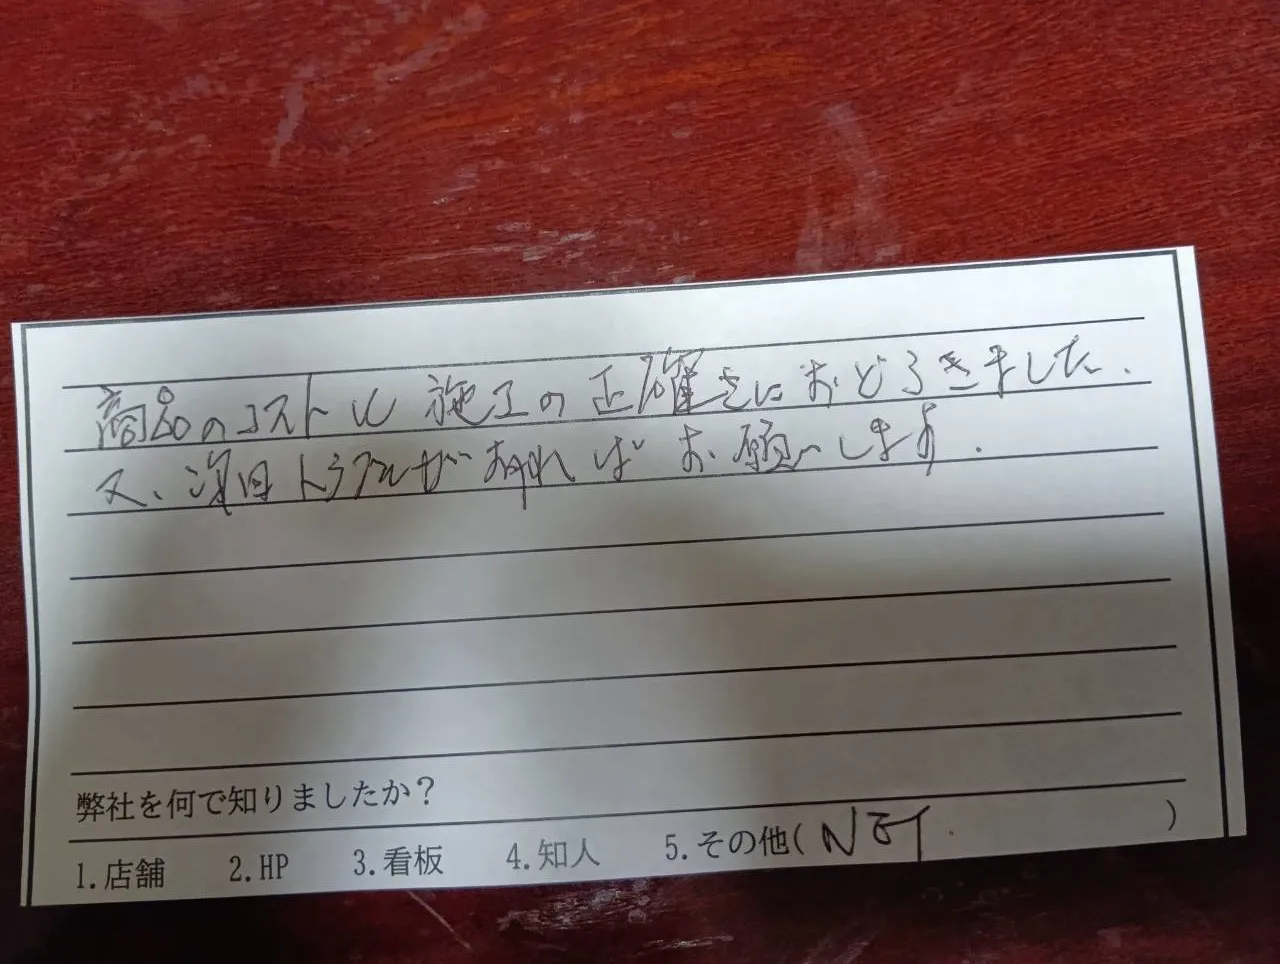 商品のコストと施工の正確さにおどろきました.
又、次回トラブルがあればお願いします.
弊社を何で知りましたか?
1.店舗 2.HP 3.看板 4.知人 5.その他( NET. )